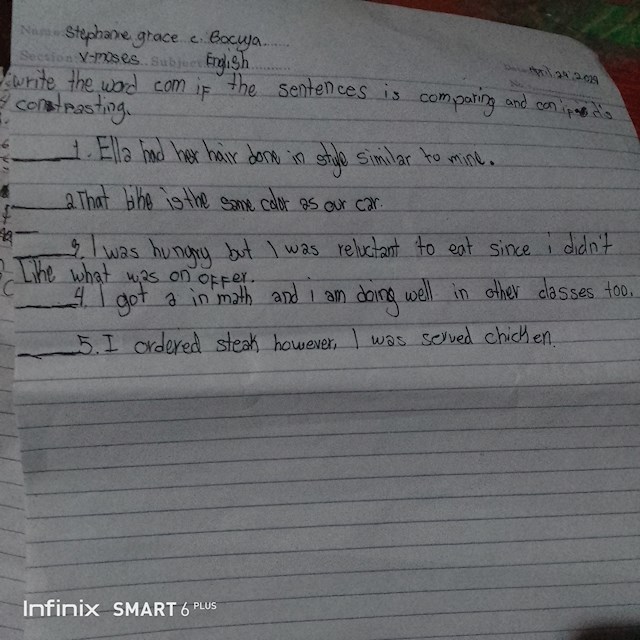 Name: Stephanie grace c. Bocuya
Section V-moses Subject English
April 24, 2029
write the word com if the sentences is comparing and con if
contrasting.
1. Ella had her hair done in style similar to mine.
2 That bike is the same color as our car.
3. I was hungry but I was reluctant to eat since i didn't
Like what was on offer.
4 I got a in math and i am doing well in other classes too.
5. I ordered steak, however, I was served chicken.
Infinix SMART 6 PLUS